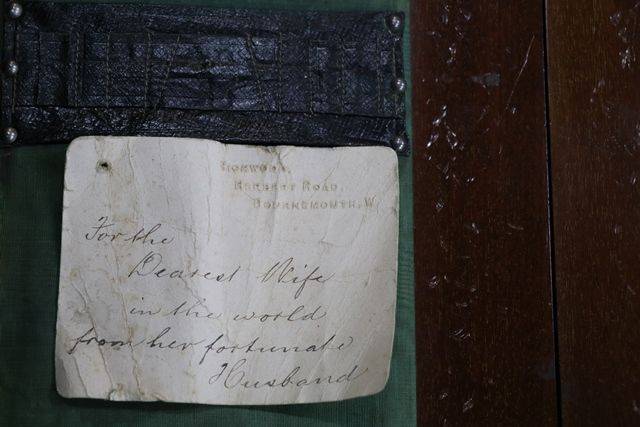 Herbert Road,
Bournemouth, W.
For the
Dearest Wife
in the world
from her fortunate
Husband